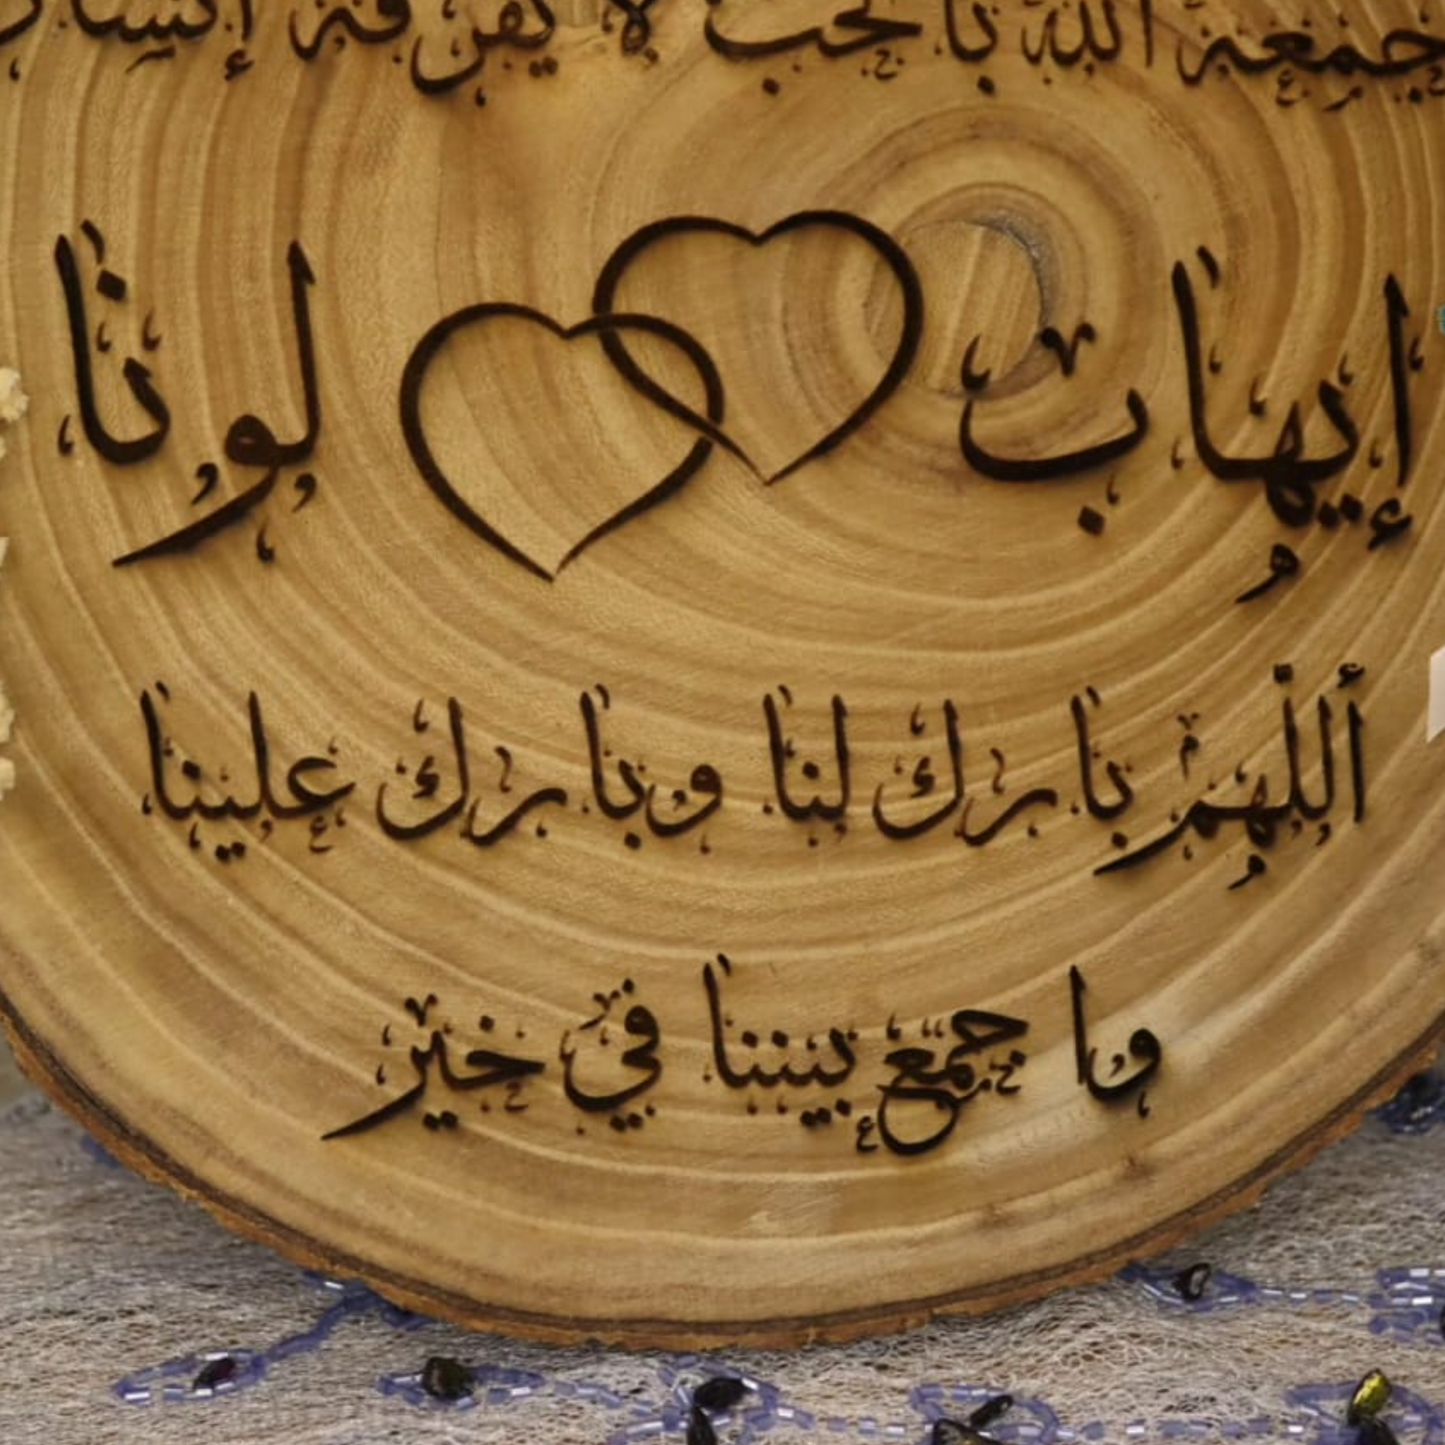 جمعة الله بالحب لا يفرقة إنسان
إيهاب لونا
أللّهم بارك لنا وبارك علينا
واجمع بيننا في خير